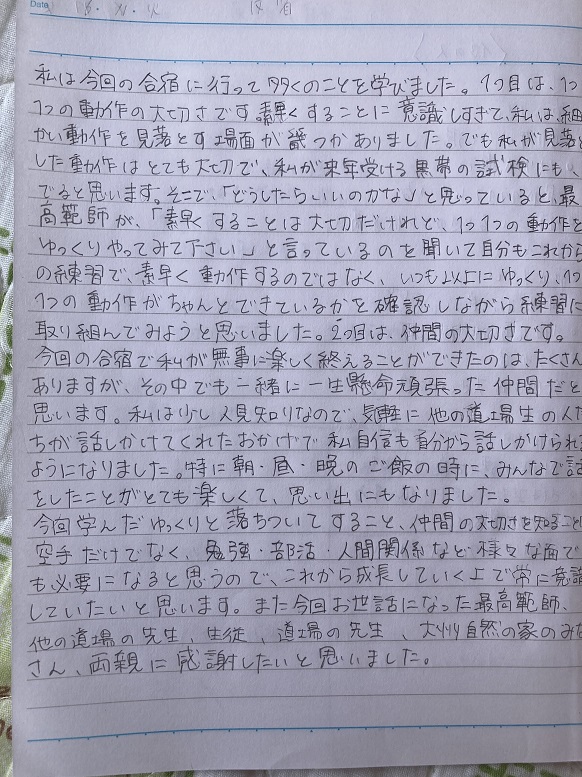 Date
私は今回の合宿に行って多くのことを学びました。1つ目は、1つ
1つの動作の大切さです。素早くすることに意識しすぎて、私は、細
かい動作を見落とす場面が幾つかありました。でも私が見落と
した動作はとても大切で、私が来年受ける黒帯の試検にもく
でると思います。そこで、「どうしたらいいのかな」と思っていると、最
高範師が、「素早くすることは大切だけれど、1つ1つの動作を
ゆっくりやってみて下さい」と言っているのを聞いて自分もこれから
の練習で、素早く動作するのではなく、いつも以上にゆっくり、1つ
1つの動作がちゃんとできているかを確認しながら練習に
取り組んでみようと思いました。2つ目は、仲間の大切さです。
今回の合宿で私が無事に楽しく終えることができたのは、たくさん
ありますが、その中でも一緒に一生懸命頑張った仲間だと
思います。私は少し人見知りなので、気軽に他の道場生の人た
ちが話しかけてくれたおかげで私自信も自分から話しかけられる
ようになりました。特に朝・昼・晩のご飯の時に、みんなで話
をしたことがとても楽しくて、思い出にもなりました。
今回学んだゆっくりと落ちついてすること、仲間の大切さを知ること
空手だけでなく、勉強・部活・人間関係など様々な面で
も必要になると思うので、これから成長していく上で常に意識
していたいと思います。また今回お世話になった最高範師、
他の道場の先生、生徒、道場の先生、大州自然の家のみな
さん、両親に感謝したいと思いました。